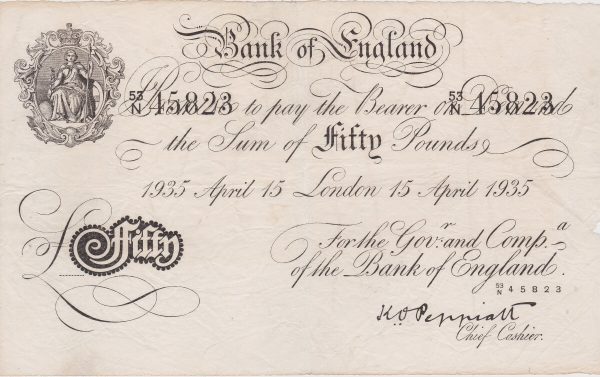 Bank of England
I Promise to pay the Bearer on Demand
53/N 45823 53/N 45823
the Sum of Fifty Pounds
1935 April 15 London 15 April 1935
£ Fifty
For the Govr. and Compa.
of the Bank of England.
53/N 45823
K O Peppiatt
Chief Cashier.